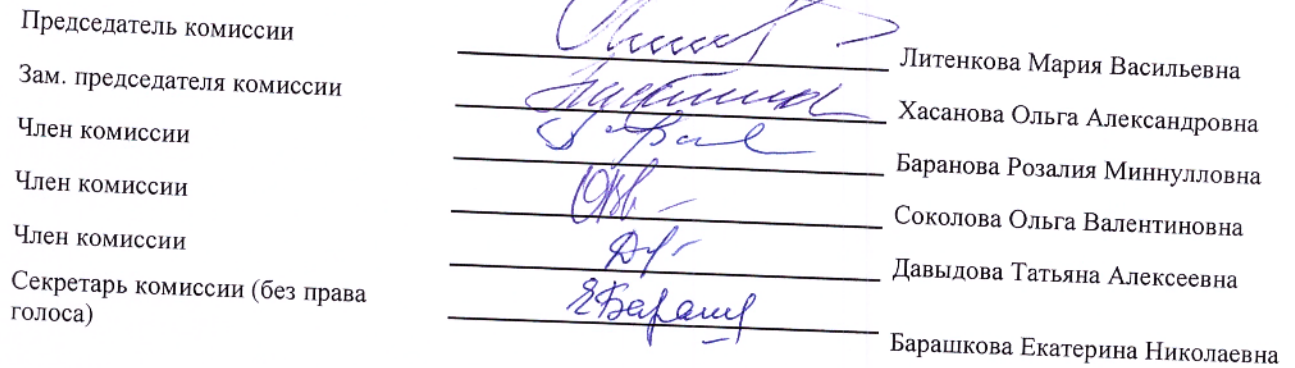 Председатель комиссии
Литенкова Мария Васильевна
Зам. председателя комиссии
Хасанова Ольга Александровна
Член комиссии
Баранова Розалия Миннулловна
Член комиссии
Соколова Ольга Валентиновна
Член комиссии
Давыдова Татьяна Алексеевна
Секретарь комиссии (без права
голоса)
Барашкова Екатерина Николаевна